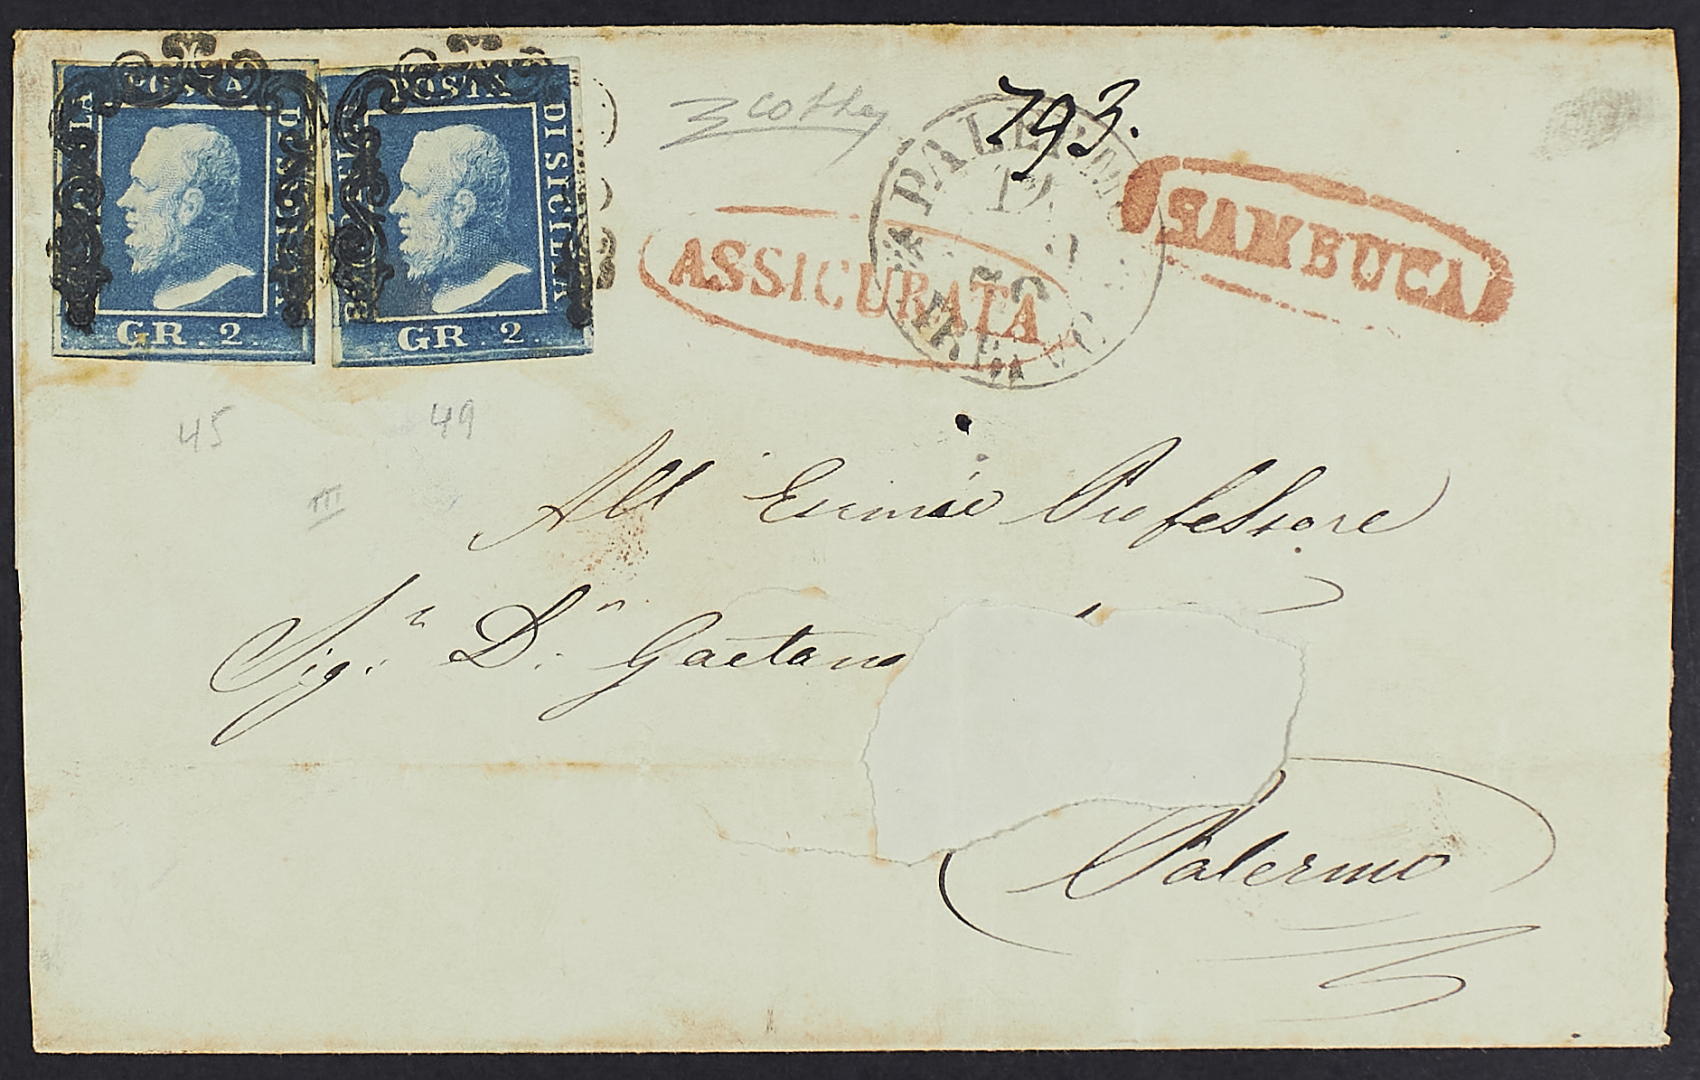 POSTA
DI SICILIA
GR. 2.
POSTA
DI SICILIA
GR. 2.
793.
PALERMO
ASSICURATA
SAMBUCA
45
49
III
All Esimio Professore
Sig.r D.n Gaetano
Palermo